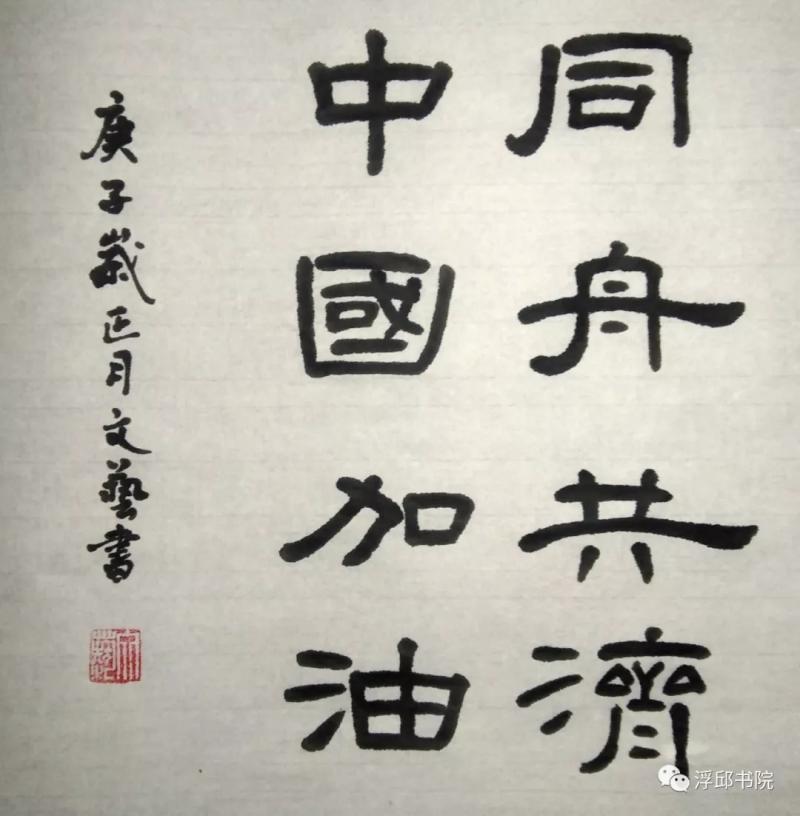 同舟共濟
中國加油
庚子歲正月文藝書
文藝
浮邱书院